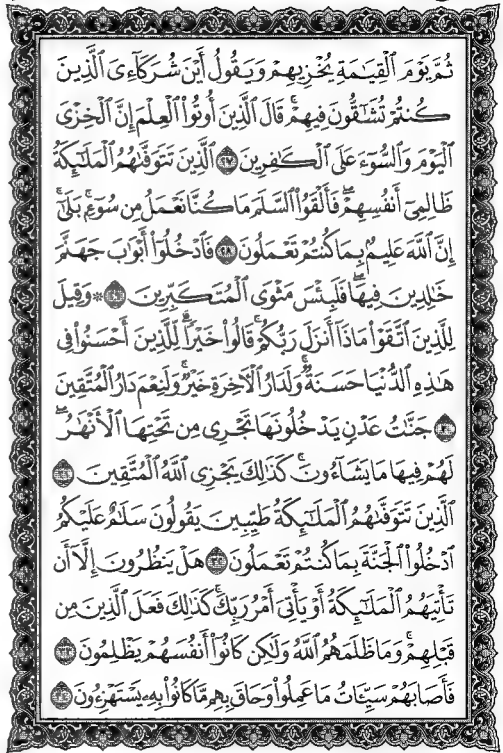 ثُمَّ يَوْمَ ٱلْقِيَٰمَةِ يُخْزِيهِمْ وَيَقُولُ أَيْنَ شُرَكَآءِىَ ٱلَّذِينَ
كُنتُمْ تُشَٰٓقُّونَ فِيهِمْ ۚ قَالَ ٱلَّذِينَ أُوتُوا۟ ٱلْعِلْمَ إِنَّ ٱلْخِزْىَ
ٱلْيَوْمَ وَٱلسُّوٓءَ عَلَى ٱلْكَٰفِرِينَ ٢٧ ٱلَّذِينَ تَتَوَفَّىٰهُمُ ٱلْمَلَٰٓئِكَةُ
ظَالِمِىٓ أَنفُسِهِمْ ۖ فَأَلْقَوُا۟ ٱلسَّلَمَ مَا كُنَّا نَعْمَلُ مِن سُوٓءٍۭ ۚ بَلَىٰٓ ۚ
إِنَّ ٱللَّهَ عَلِيمٌۢ بِمَا كُنتُمْ تَعْمَلُونَ ٢٨ فَٱدْخُلُوٓا۟ أَبْوَٰبَ جَهَنَّمَ
خَٰلِدِينَ فِيهَا ۖ فَلَبِئْسَ مَثْوَى ٱلْمُتَكَبِّرِينَ ٢٩ * وَقِيلَ
لِلَّذِينَ ٱتَّقَوْا۟ مَاذَآ أَنزَلَ رَبُّكُمْ ۚ قَالُوا۟ خَيْرًا ۗ لِّلَّذِينَ أَحْسَنُوا۟ فِى
هَٰذِهِ ٱلدُّنْيَا حَسَنَةٌ ۚ وَلَدَارُ ٱلْءَاخِرَةِ خَيْرٌ ۚ وَلَنِعْمَ دَارُ ٱلْمُتَّقِينَ
٣٠ جَنَّٰتُ عَدْنٍ يَدْخُلُونَهَا تَجْرِى مِن تَحْتِهَا ٱلْأَنْهَٰرُ ۖ
لَهُمْ فِيهَا مَا يَشَآءُونَ ۚ كَذَٰلِكَ يَجْزِى ٱللَّهُ ٱلْمُتَّقِينَ ٣١
ٱلَّذِينَ تَتَوَفَّىٰهُمُ ٱلْمَلَٰٓئِكَةُ طَيِّبِينَ يَقُولُونَ سَلَٰمٌ عَلَيْكُمُ
ٱدْخُلُوا۟ ٱلْجَنَّةَ بِمَا كُنتُمْ تَعْمَلُونَ ٣٢ هَلْ يَنظُرُونَ إِلَّآ أَن
تَأْتِيَهُمُ ٱلْمَلَٰٓئِكَةُ أَوْ يَأْتِىَ أَمْرُ رَبِّكَ ۚ كَذَٰلِكَ فَعَلَ ٱلَّذِينَ مِن
قَبْلِهِمْ ۚ وَمَا ظَلَمَهُمُ ٱللَّهُ وَلَٰكِن كَانُوٓا۟ أَنفُسَهُمْ يَظْلِمُونَ ٣٣
فَأَصَابَهُمْ سَيِّـَٔاتُ مَا عَمِلُوا۟ وَحَاقَ بِهِم مَّا كَانُوا۟ بِهِۦ يَسْتَهْزِءُونَ ٣٤